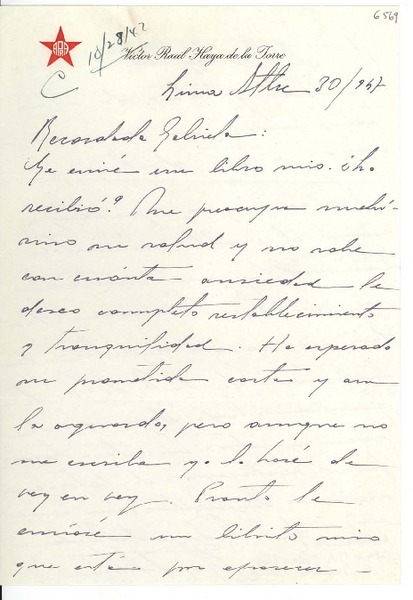 6569
APRA
10/28/47
Víctor Raúl Haya de la Torre
C
Lima Stbre 30/947
Recordada Gabriela:
Le envié un libro mío. ¿Lo
recibió? Me preocupa muchí-
simo su salud y no sabe
con cuánta ansiedad le
deseo completo restablecimiento
y tranquilidad. He esperado
su prometida carta y aun
la aguardo, pero aunque no
me escriba yo lo haré de
vez en vez. Pronto le
enviaré un librito mío
que está por aparecer